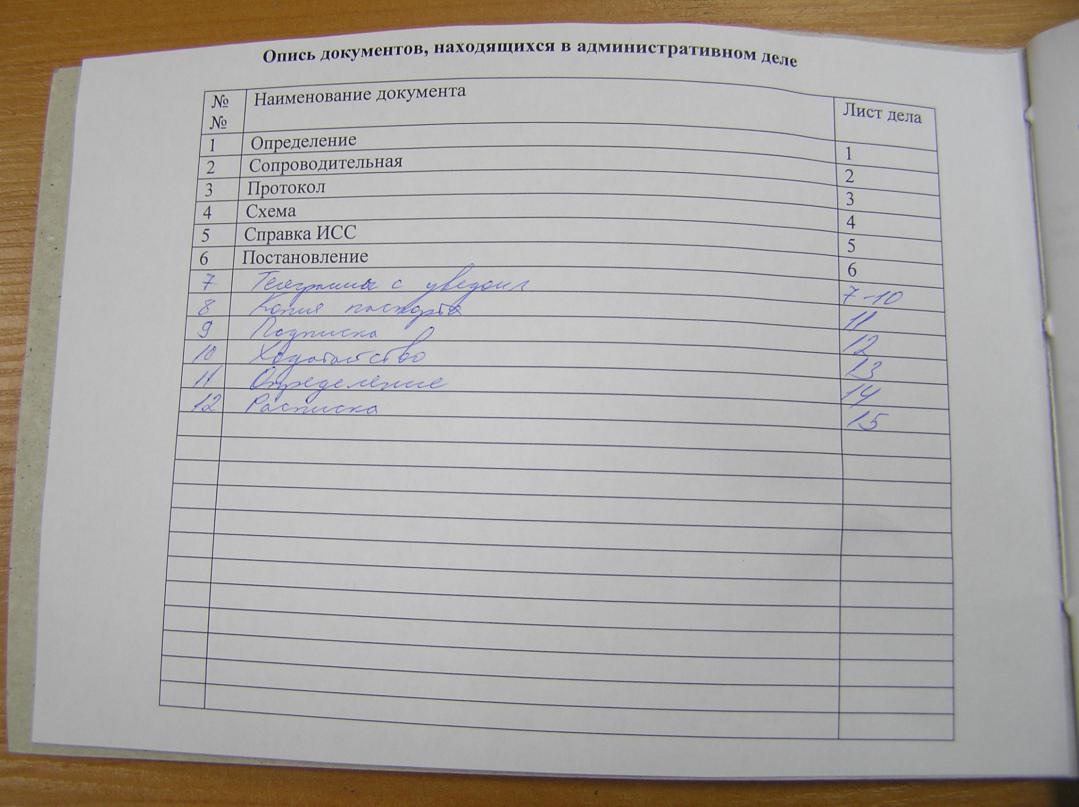 Опись документов, находящихся в административном деле
№ № Наименование документа Лист дела
1 Определение 1
2 Сопроводительная 2
3 Протокол 3
4 Схема 4
5 Справка ИСС 5
6 Постановление 6
7 Телеграммы с уведомл 7-10
8 Копия паспорта 11
9 Подписка 12
10 Ходатайство 13
11 Определение 14
12 Расписка 15